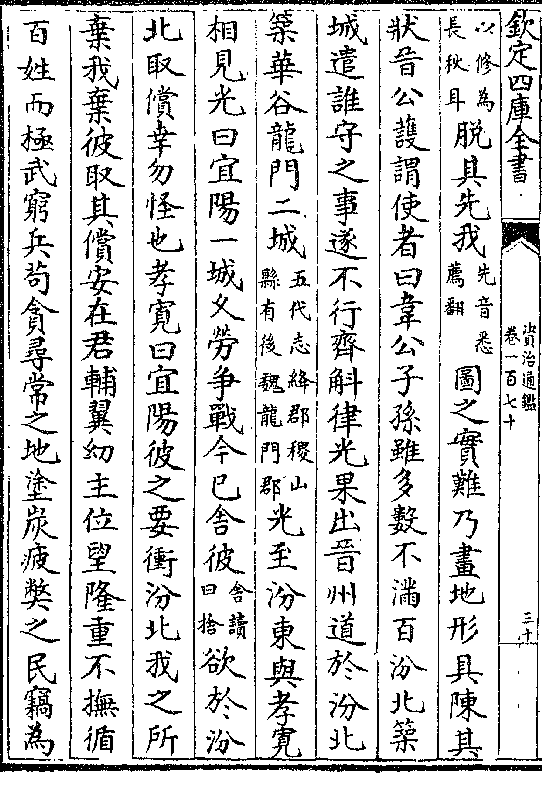 欽定四庫全書
資治通鑑
卷一百七十
三十
以修為
長秋耳
脫其先我
先音悉
薦翻
圖之實難乃畫地形具陳其
狀晉公護謂使者曰韋公子孫雖多數不滿百汾北築
城遣誰守之事遂不行齊斛律光果出晉州道於汾北
築華谷龍門二城
五代志絳郡稷山
縣有後魏龍門郡
光至汾東與孝寛
相見光曰宜陽一城乆勞争戰今已舍彼
舍讀
曰捨
欲於汾
北取償幸勿怪也孝寛曰宜陽彼之要衝汾北我之所
棄我棄彼取其償安在君輔翼幼主位望隆重不撫循
百姓而極武窮兵苟貪尋常之地塗炭疲弊之民竊為